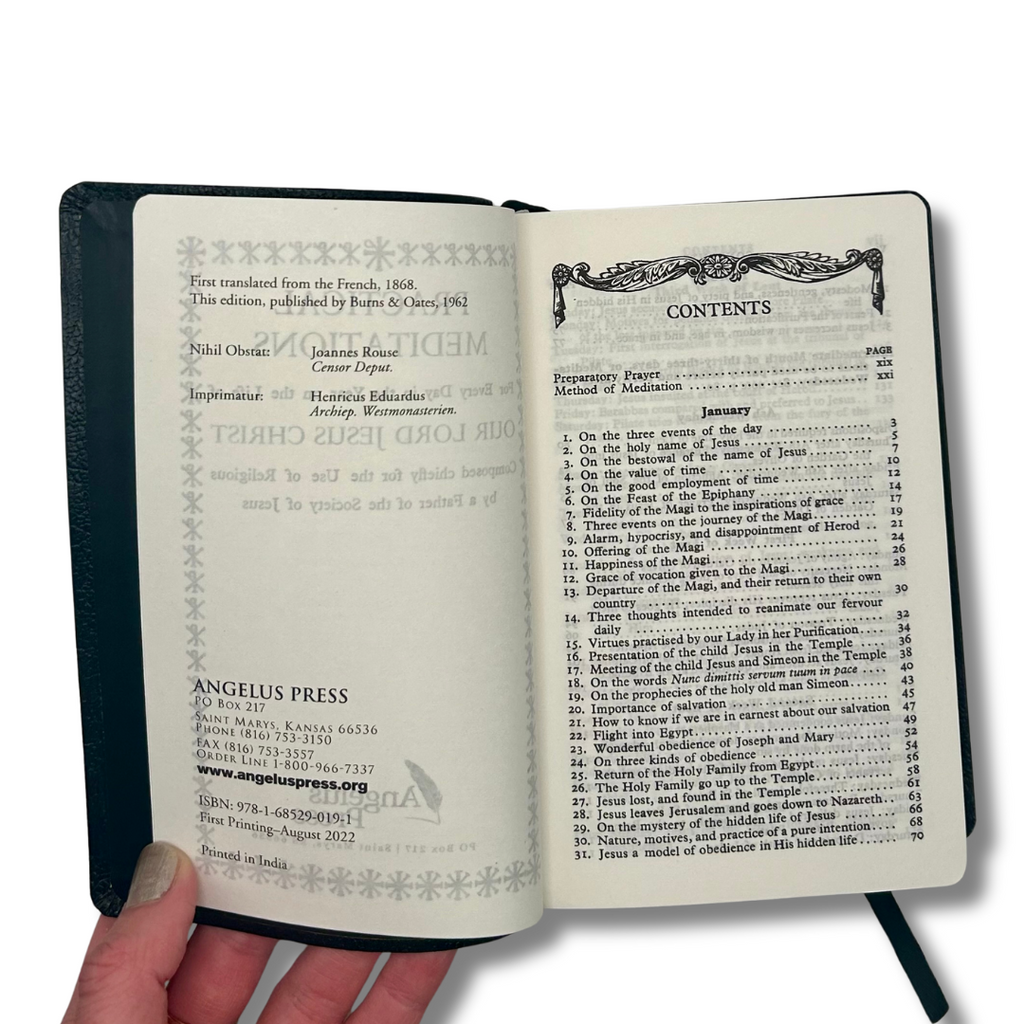 First translated from the French, 1868.
This edition, published by Burns & Oates, 1962
Nihil Obstat: Joannes Rouse
Censor Deput.
Imprimatur: Henricus Eduardus
Archiep. Westmonasterien.
ANGELUS PRESS
PO BOX 217
SAINT MARYS, KANSAS 66536
PHONE (816) 753-3150
FAX (816) 753-3557
ORDER LINE 1-800-966-7337
www.angeluspress.org
ISBN: 978-1-68529-019-1
First Printing–August 2022
Printed in India
CONTENTS
PAGE
Preparatory Prayer xix
Method of Meditation xxi
January
1. On the three events of the day 3
2. On the holy name of Jesus 5
3. On the bestowal of the name of Jesus 7
4. On the value of time 10
5. On the good employment of time 12
6. On the Feast of the Epiphany 14
7. Fidelity of the Magi to the inspirations of grace 17
8. Three events on the journey of the Magi 19
9. Alarm, hypocrisy, and disappointment of Herod 21
10. Offering of the Magi 24
11. Happiness of the Magi 26
12. Grace of vocation given to the Magi 28
13. Departure of the Magi, and their return to their own
country 30
14. Three thoughts intended to reanimate our fervour
daily 32
15. Virtues practised by our Lady in her Purification 34
16. Presentation of the child Jesus in the Temple 36
17. Meeting of the child Jesus and Simeon in the Temple 38
18. On the words Nunc dimittis servum tuum in pace 40
19. On the prophecies of the holy old man Simeon 43
20. Importance of salvation 45
21. How to know if we are in earnest about our salvation 47
22. Flight into Egypt 49
23. Wonderful obedience of Joseph and Mary 52
24. On three kinds of obedience 54
25. Return of the Holy Family from Egypt 56
26. The Holy Family go up to the Temple 58
27. Jesus lost, and found in the Temple 61
28. Jesus leaves Jerusalem and goes down to Nazareth 63
29. On the mystery of the hidden life of Jesus 66
30. Nature, motives, and practice of a pure intention 68
31. Jesus a model of obedience in His hidden life 70